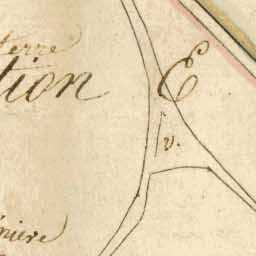 terre
tion E
v.
nière